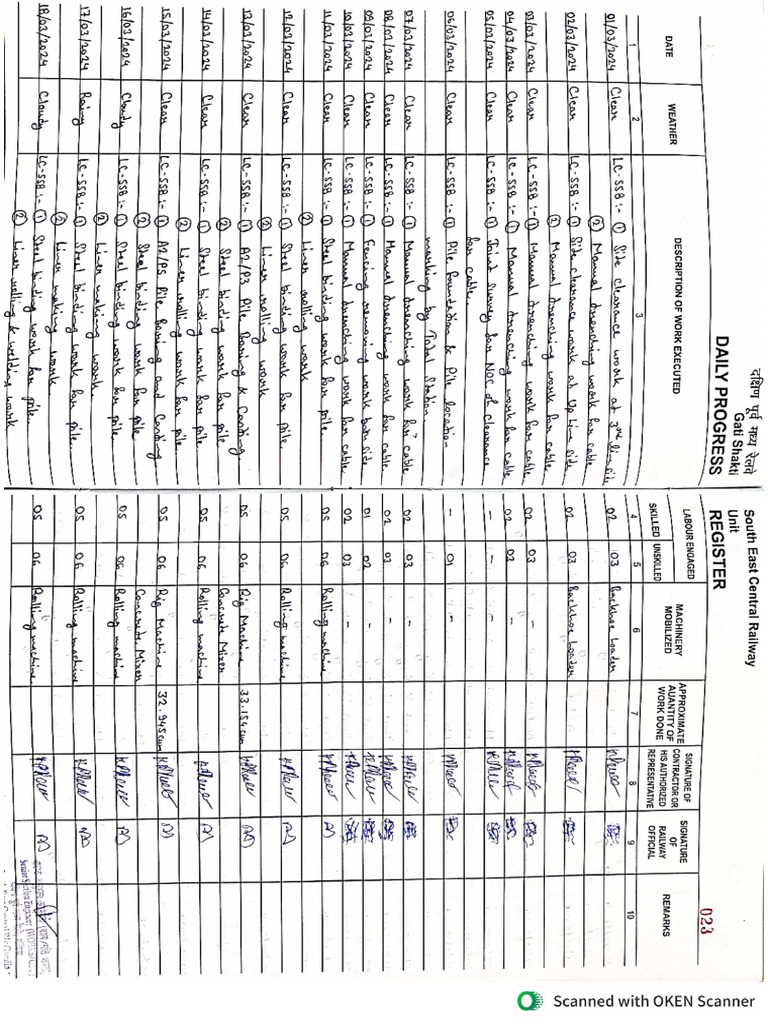 दक्षिण पूर्व मध्य रेलवे South East Central Railway
Gati Shakti Unit
DAILY PROGRESS REGISTER
023
DATE WEATHER DESCRIPTION OF WORK EXECUTED LABOUR ENGAGED SKILLED UNSKILLED MACHINERY MOBILIZED APPROXIMATE AUANTITY OF WORK DONE SIGNATURE OF CONTRACTOR OR HIS AUTHORIZED REPRESENTATIVE SIGNATURE OF RAILWAY OFFICIAL REMARKS
1 2 3 4 5 6 7 8 9 10
01/03/2024 Clear LC-558:- ① Side clearance work at 3rd line side 02 03 Backhoe loader
② Manual trenching work for cable
02/03/2024 Clear LC-558:- ① Side clearance work at Up line side 02 03 Backhoe loader
② Manual trenching work for cable
03/03/2024 Clear LC-558:- ① Manual trenching work for cable 02 03 -
04/03/2024 Clear LC-558:- ① Manual trenching work for cable 02 02 -
05/03/2024 Clear LC-558:- ① Joint survey for NOC of clearance - - -
for cable.
06/03/2024 Clear LC-558:- ① Pile foundation & Pile location - 01 -
marking by Total Station.
07/03/2024 Clear LC-558:- ① Manual trenching work for cable 02 03 -
08/03/2024 Clear LC-558:- ① Manual trenching work for cable 02 03 -
09/03/2024 Clear LC-558:- ① Fencing removing work both side 01 02 -
10/03/2024 Clear LC-558:- ① Manual trenching work for cable 02 03 -
11/03/2024 Clear LC-558:- ① Steel binding work for pile. 05 06 Rolling machine
② Liner rolling work
12/03/2024 Clear LC-558:- ① Steel binding work for pile. 05 06 Rolling machine
② Liner rolling work
13/03/2024 Clear LC-558:- ① A2/P3 Pile Boring & Casting 05 06 Rig Machine 33.154cum
② Steel binding work for pile Concrete Mixer
14/03/2024 Clear LC-558:- ① Steel binding work for pile 05 06 Rolling machine
② Liner rolling work for pile
15/03/2024 Clear LC-558:- ① A2/P5 Pile Boring and Casting 05 06 Rig Machine 32.945cum
② Steel binding work for pile Concrete Mixer
16/03/2024 Cloudy LC-558:- ① Steel binding work for pile 05 06 Rolling machine
② Liner making work.
17/03/2024 Rainy LC-558:- ① Steel binding work for pile. 05 06 Rolling machine
② Liner making work
18/03/2024 Cloudy LC-558:- ① Steel binding work for pile. 05 06 Rolling machine
② Liner rolling & welding work
Senior Section Engineer
Scanned with OKEN Scanner